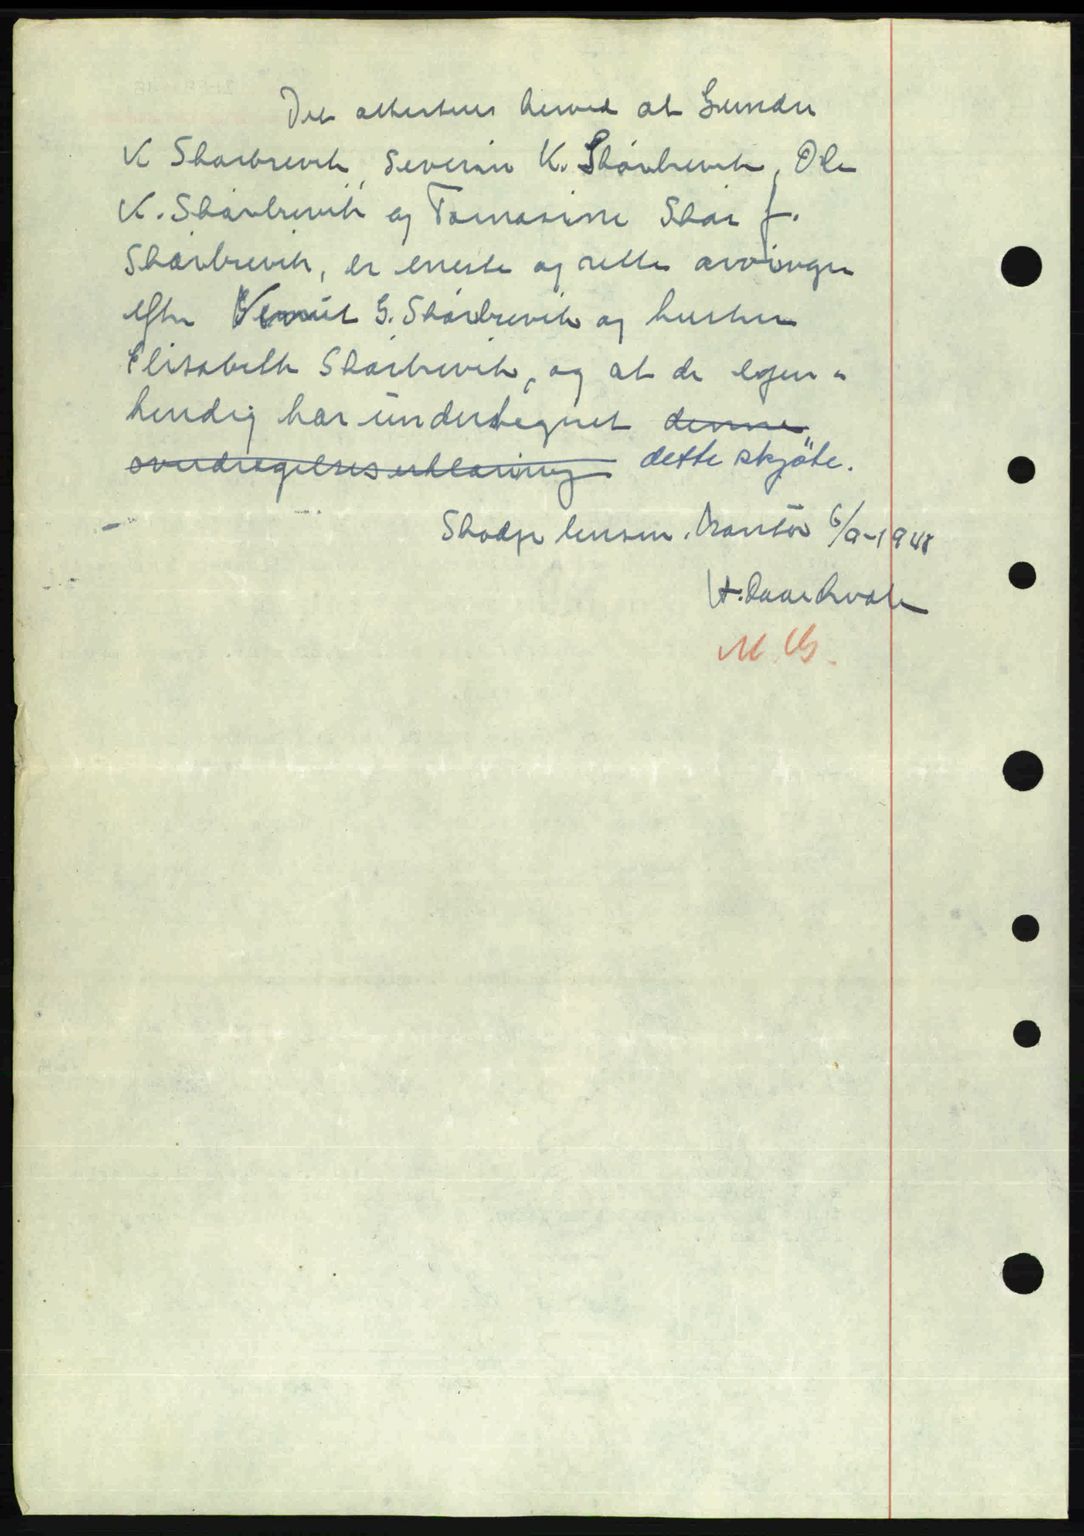 Det attesteres herved at Gunder
K Skarbrevik, Severin K. Skarbrevik, Ole
K. Skarbrevik og Tomasine Skar f.
Skarbrevik, er eneste og rette arvinger
efter G. Skarbrevik og hustru
Elisabeth Skarbrevik, og at de egen-
hendig har undertegnet denne
overdragelseserklæring dette skjøte.
6/9-1948
M. G.